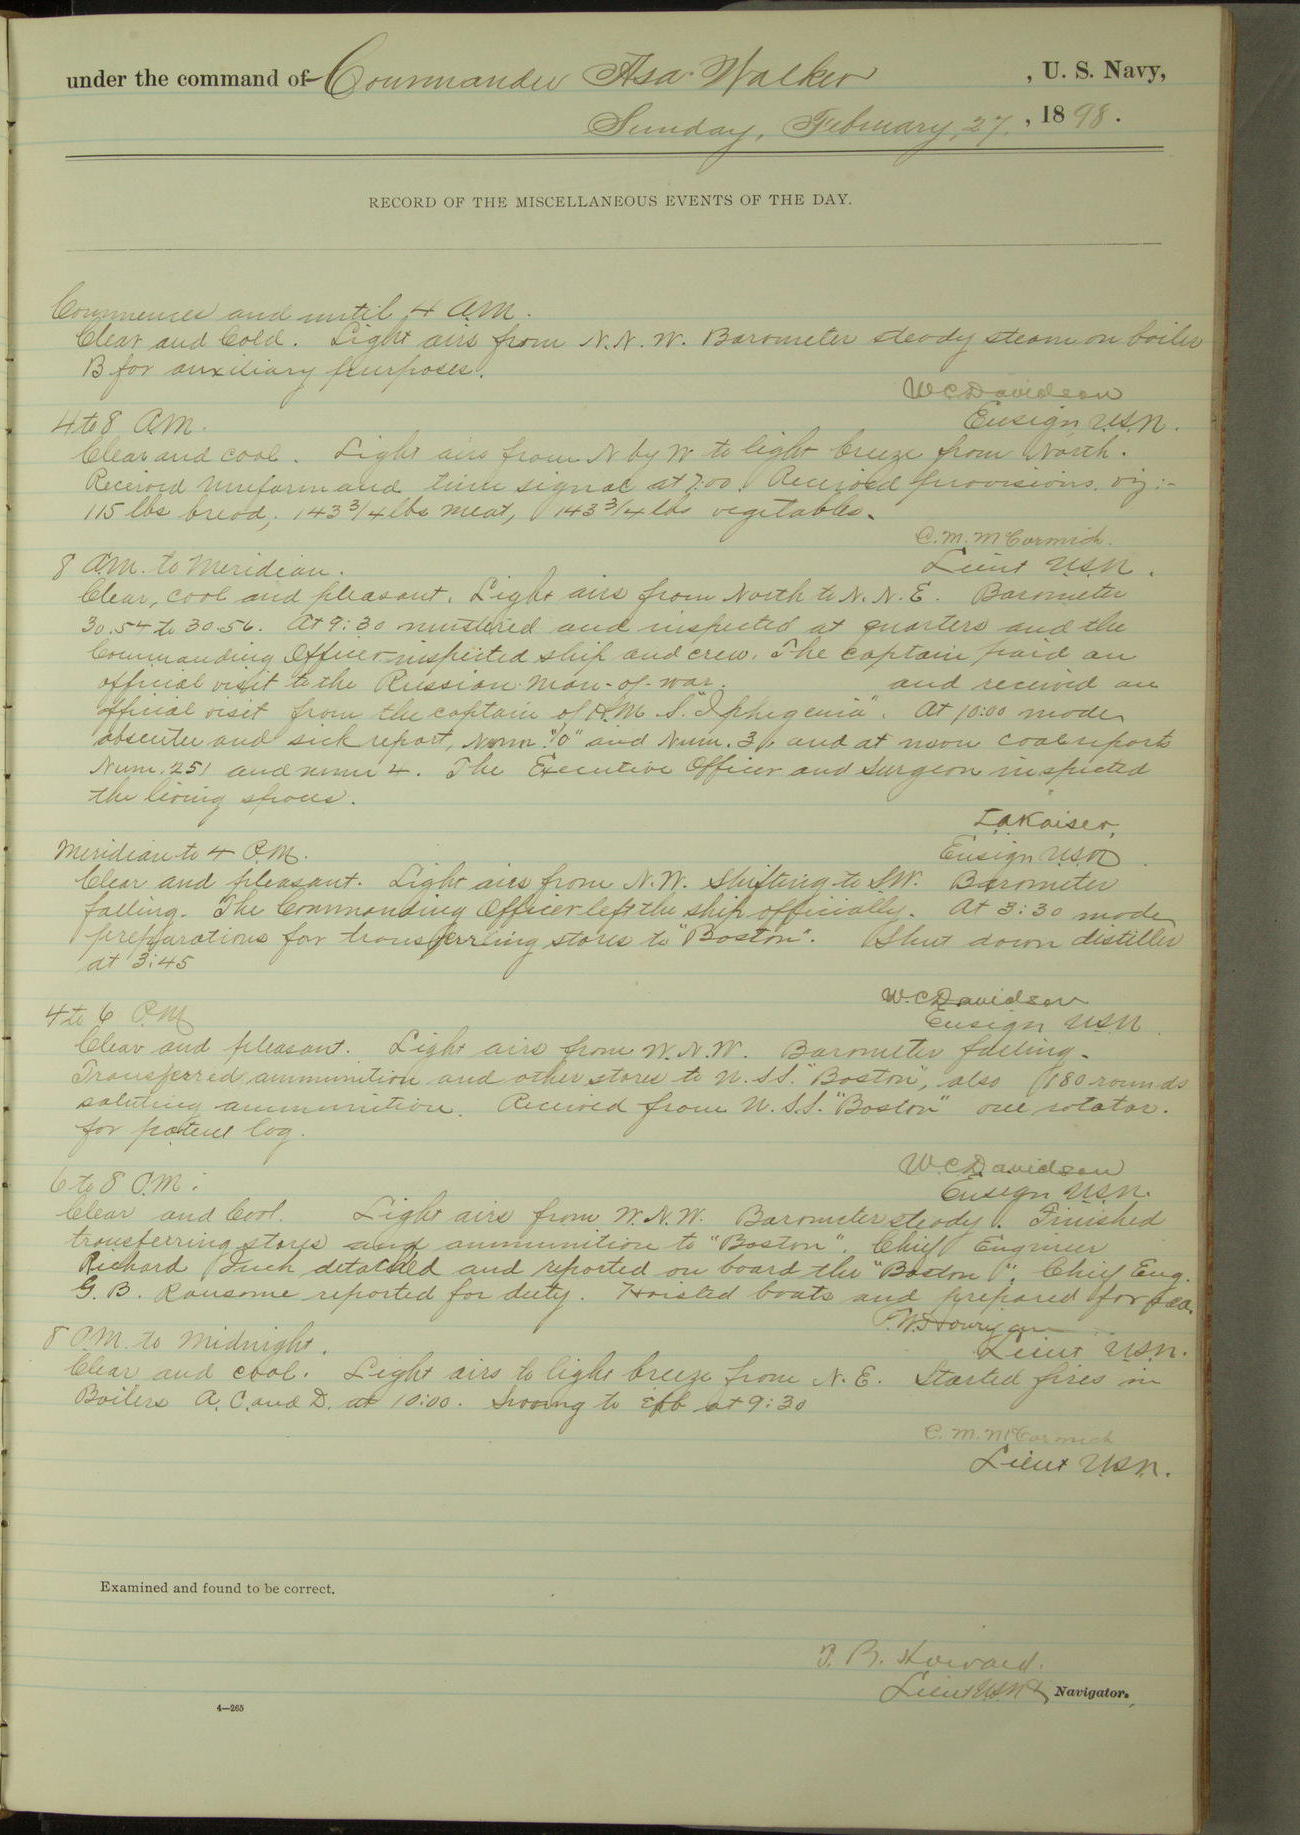 under the command of Commander Asa Walker , U. S. Navy,
Sunday, February, 27. , 1898.
RECORD OF THE MISCELLANEOUS EVENTS OF THE DAY.
Commences and until 4 A.M.
Clear and Cold. Light airs from N.N.W. Barometer steady steam on boiler
B for auxiliary purposes.
W C Davidson
Ensign U.S.N.
4 to 8 A.M.
Clear and cool. Light airs from N by W to light breeze from North.
Received uniform and time signal at 7:00. Received provisions viz:-
115 lbs bread, 143 3/4 lbs meat, 143 3/4 lbs vegetables.
C. M. McCormick.
Lieut U.S.N.
8 A.M. to Meridian.
Clear, cool and pleasant. Light airs from North to N.N.E. Barometer
30.54 to 30.56. At 9:30 mustered and inspected at quarters and the
Commanding Officer inspected ship and crew. The captain paid an
official visit to the Russian Man-of-war. and received an
official visit from the captain of H.M.S. "Iphegenia". At 10:00 made
absentee and sick report, Num. "0" and Num. 3, and at noon coal report
Num. 251 and num 4. The Executive Officer and Surgeon inspected
the living spaces.
Ensign U.S.N.
Meridian to 4 P.M.
Clear and pleasant. Light airs from N.W. shifting to S.W. Barometer
falling. The Commanding Officer left the ship officially. At 3:30 made
preparations for transferring stores to "Boston". Shut down distiller
at 3:45
W.C. Davidson
Ensign U.S.N.
4 to 6 P.M.
Clear and pleasant. Light airs from W.N.W. Barometer falling.
Transferred ammunition and other stores to U.S.S. "Boston", also 180 rounds
saluting ammunition. Received from U.S.S. "Boston" one rotator.
for patent log.
W.C. Davidson
Ensign U.S.N.
6 to 8 P.M.:
Clear and Cool. Light airs from W.N.W. Barometer steady. Finished
transferring stores and ammunition to "Boston". Chief Engineer
Richard Inch detatched and reported on board the "Boston". Chief Eng.
G. B. Ransome reported for duty. Hoisted boats and prepared for sea.
Lieut U.S.N.
8 P.M. to Midnight.
Clear and cool. Light airs to light breeze from N.E. Started fires in
Boilers A, C. and D. at 10:00. Swung to ebb at 9:30
C. M. McCormick
Lieut U.S.N.
Examined and found to be correct.
T. B. Howard.
Lieut U.S.N., Navigator.
4—265